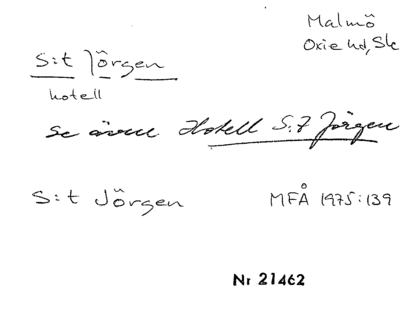 Malmö
Oxie hd, Sk
S:t Jörgen
hotell
se även Hotell S:t Jörgen
S:t Jörgen MFÅ 1975:139
Nr 21462